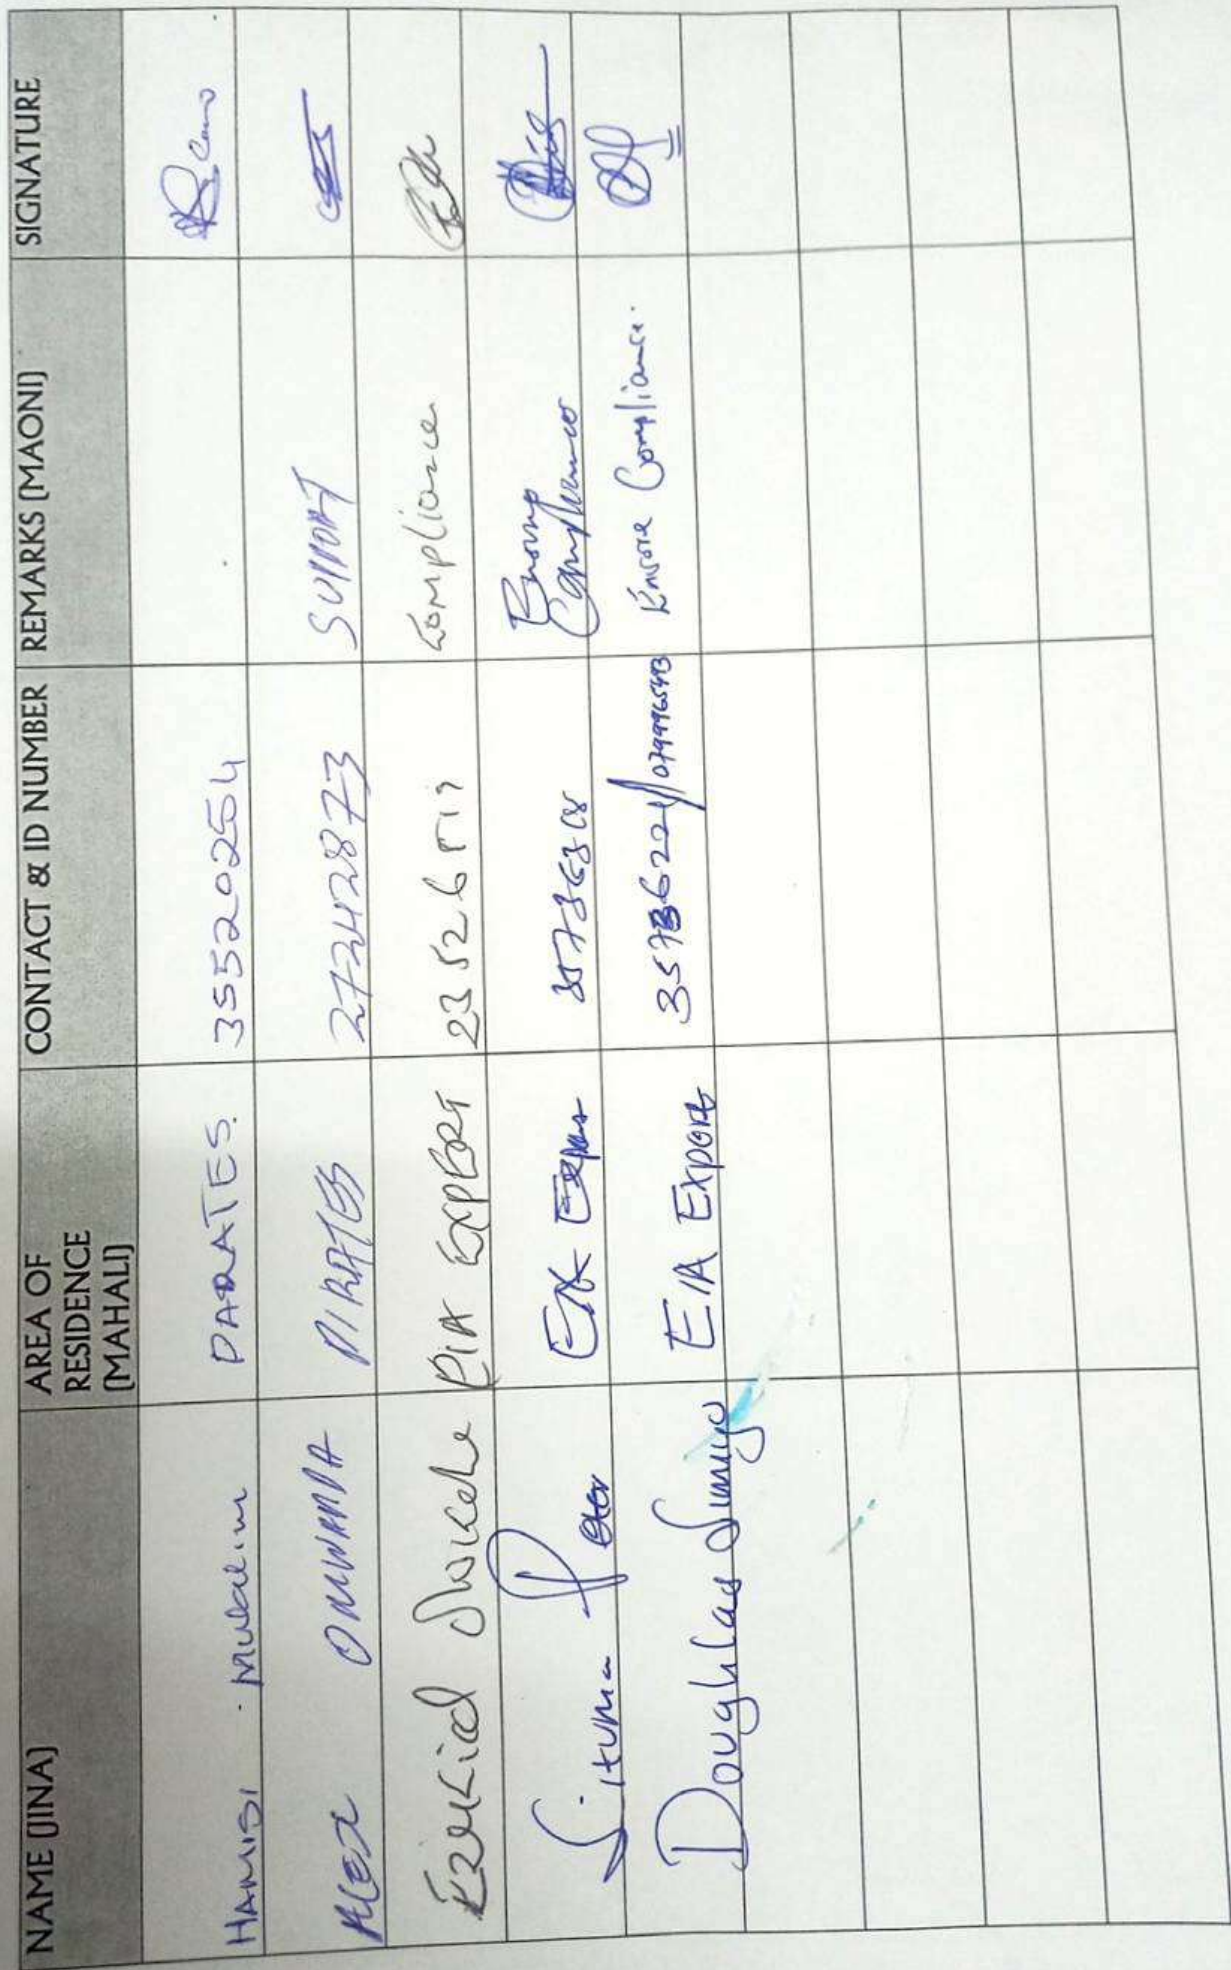 NAME (JINA) AREA OF RESIDENCE (MAHALI) CONTACT & ID NUMBER REMARKS (MAONI) SIGNATURE
HAMISI PARATES. 35520254
ALEX OMWANDA PIRATES 27242873 SUPPORT
Ezekiel EIA EXPERT Compliance
Situma Peter EIA Expert Ensure Compliance
Doughlas Simiyu EIA Expert Ensure Compliance.